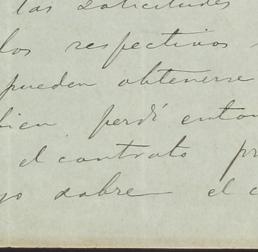 las solicitudes
los respectivos
pueden obtenerse
bien perdí enton
el contrato pr
go sobre el c